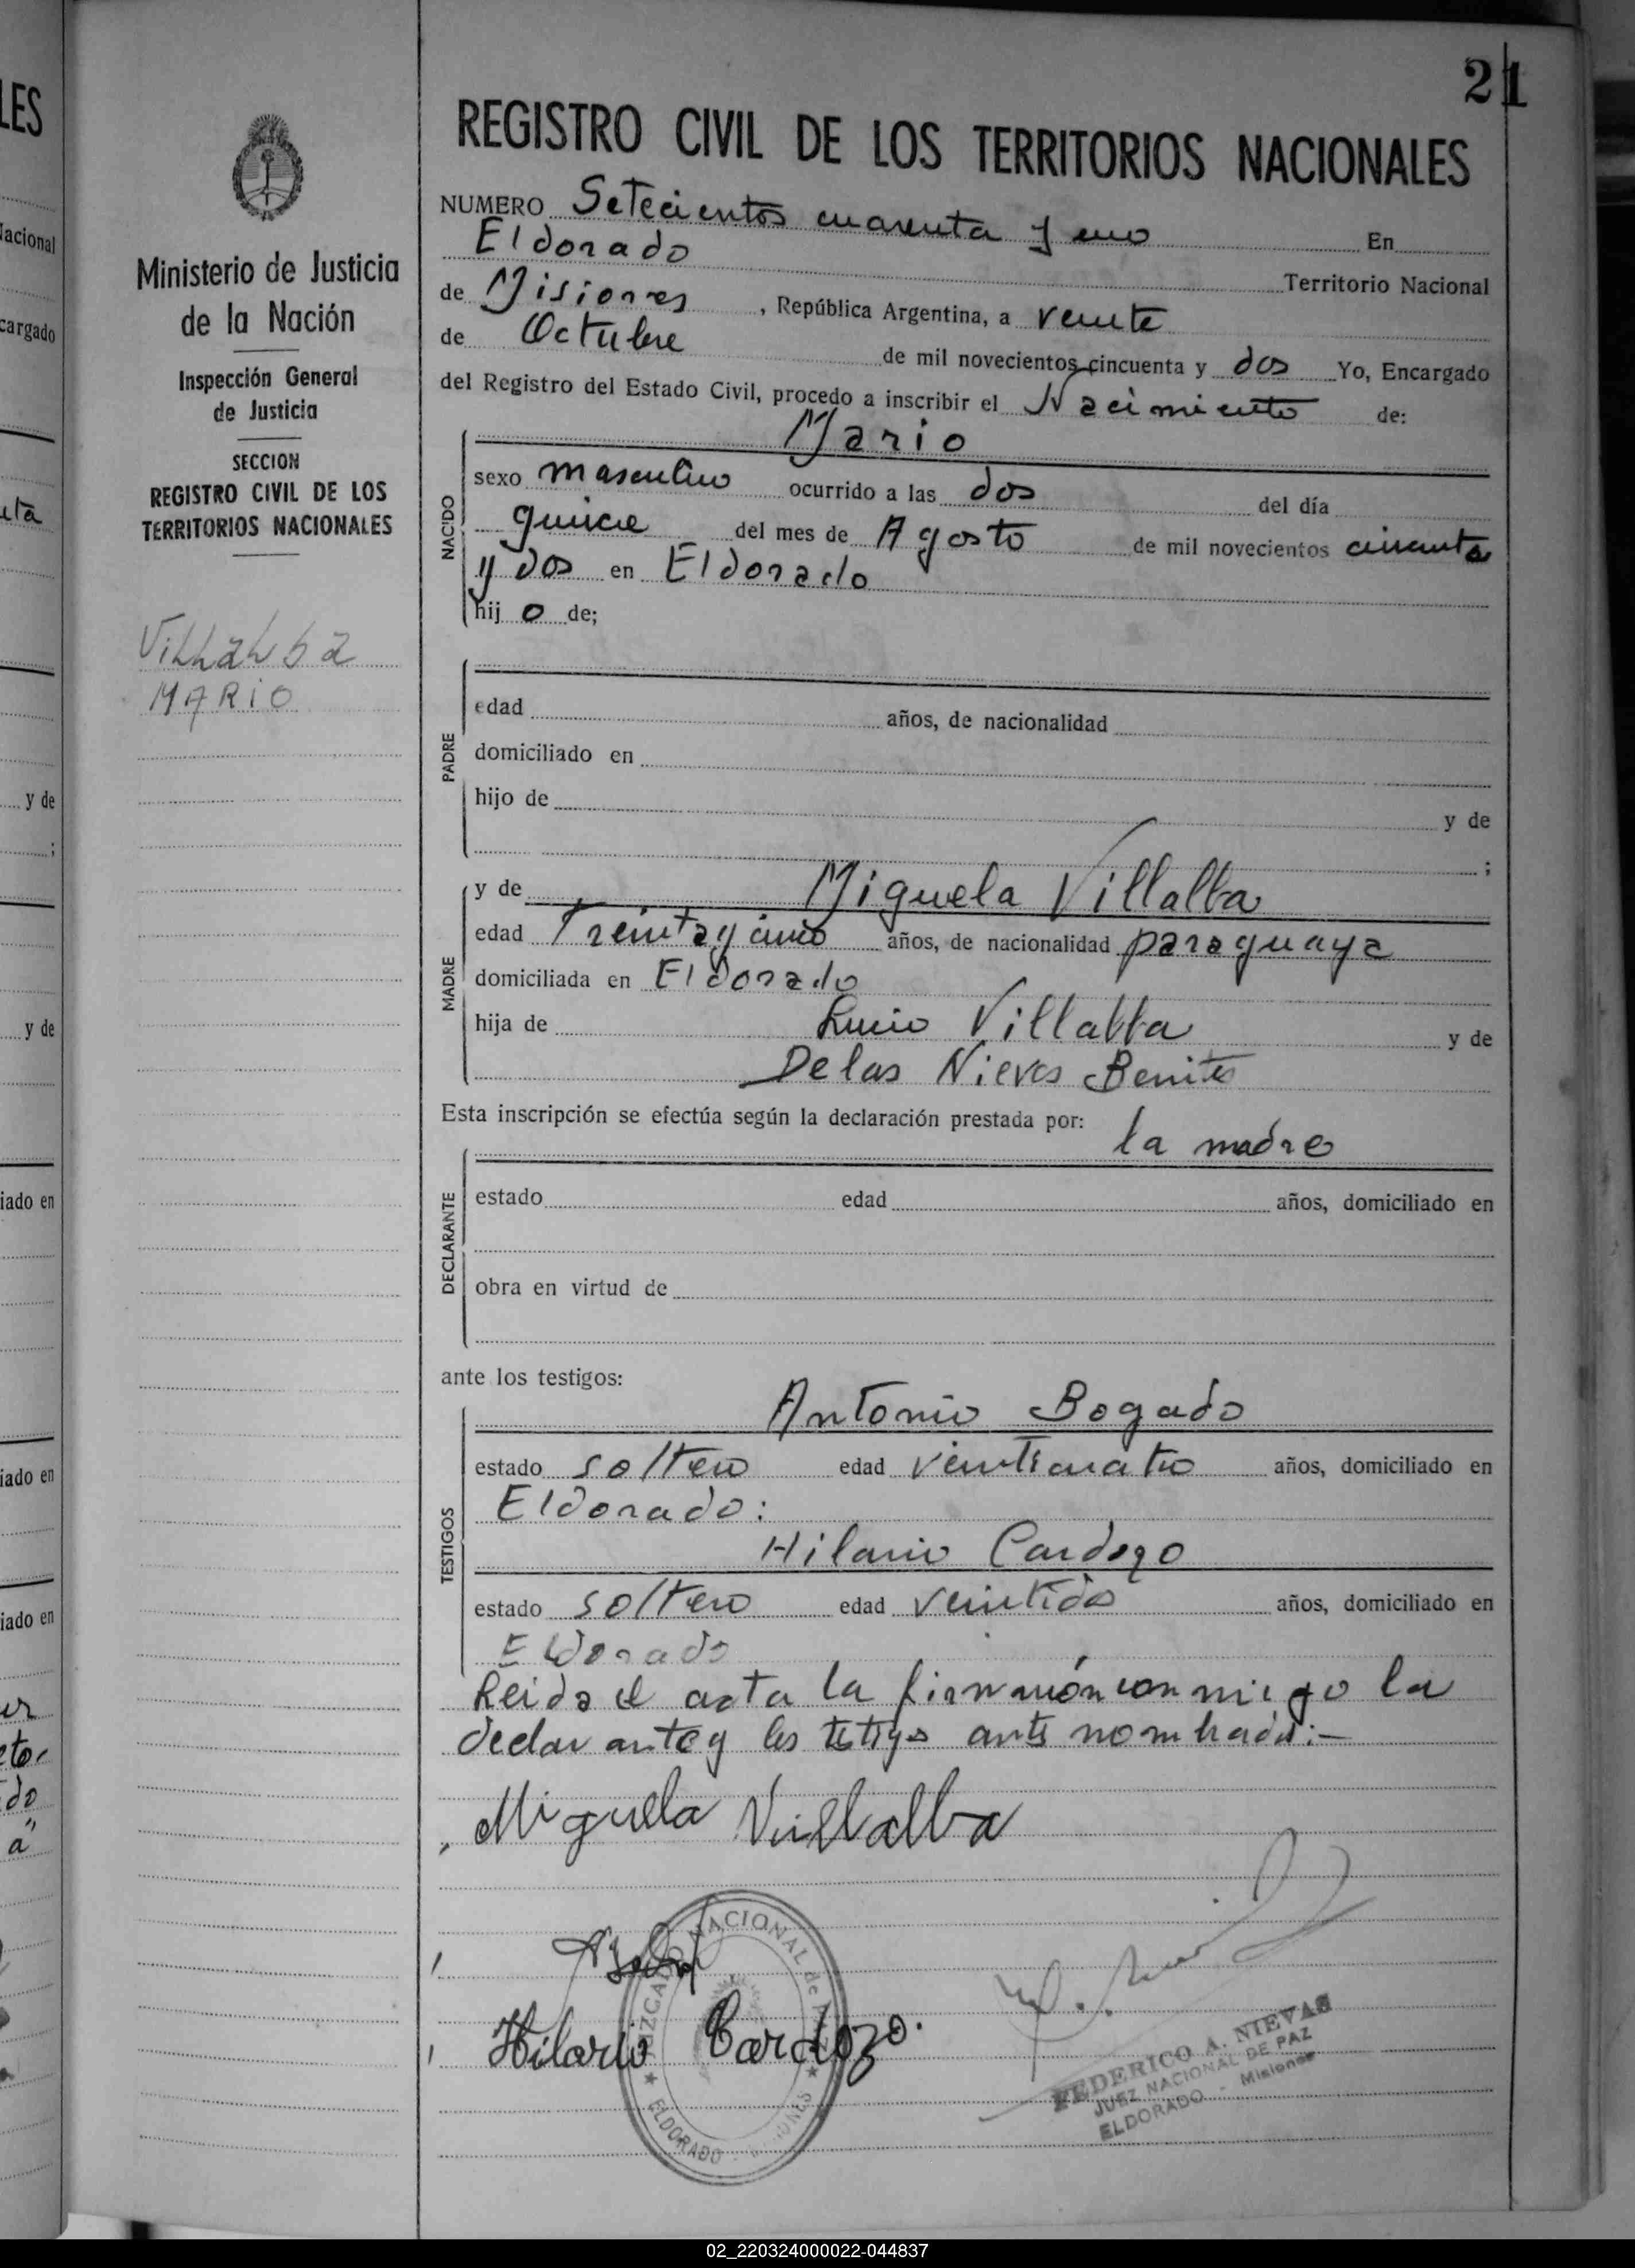 21
REGISTRO CIVIL DE LOS TERRITORIOS NACIONALES
Ministerio de Justicia
de la Nación
Inspección General
de Justicia
SECCION
REGISTRO CIVIL DE LOS
TERRITORIOS NACIONALES
Villalba
MARIO
NUMERO Setecientos cuarenta y uno En
Eldorado Territorio Nacional
de Misiones, República Argentina, a veinte
de Octubre de mil novecientos cincuenta y dos Yo, Encargado
del Registro del Estado Civil, procedo a inscribir el Nacimiento de:
NACIDO
Mario
sexo masculino ocurrido a las dos del día
quince del mes de Agosto de mil novecientos cincuenta
y dos en Eldorado
hij o de;
PADRE
edad años, de nacionalidad
domiciliado en
hijo de y de
;
MADRE
y de Miguela Villalba
edad Treinta y cinco años, de nacionalidad paraguaya
domiciliada en Eldorado
hija de Lucio Villalba y de
Delas Nieves Benites
Esta inscripción se efectúa según la declaración prestada por:
la madre
DECLARANTE
estado edad años, domiciliado en
obra en virtud de
ante los testigos:
TESTIGOS
Antonio Bogado
estado soltero edad veinticuatro años, domiciliado en
Eldorado:
Hilario Cardozo
estado soltero edad veintidos años, domiciliado en
Eldorado
Leida el acta la firmarón conmigo la
declarante y los testigos antes nombrados:-
Miguela Villalba
Hilario Cardozo.
JUZGADO NACIONAL de
ELDORADO
FEDERICO A. NIEVAS
JUEZ NACIONAL DE PAZ
ELDORADO - Misiones
LES
Nacional
cargado
y de
;
y de
iado en
iado en
iado en
02_220324000022-044837